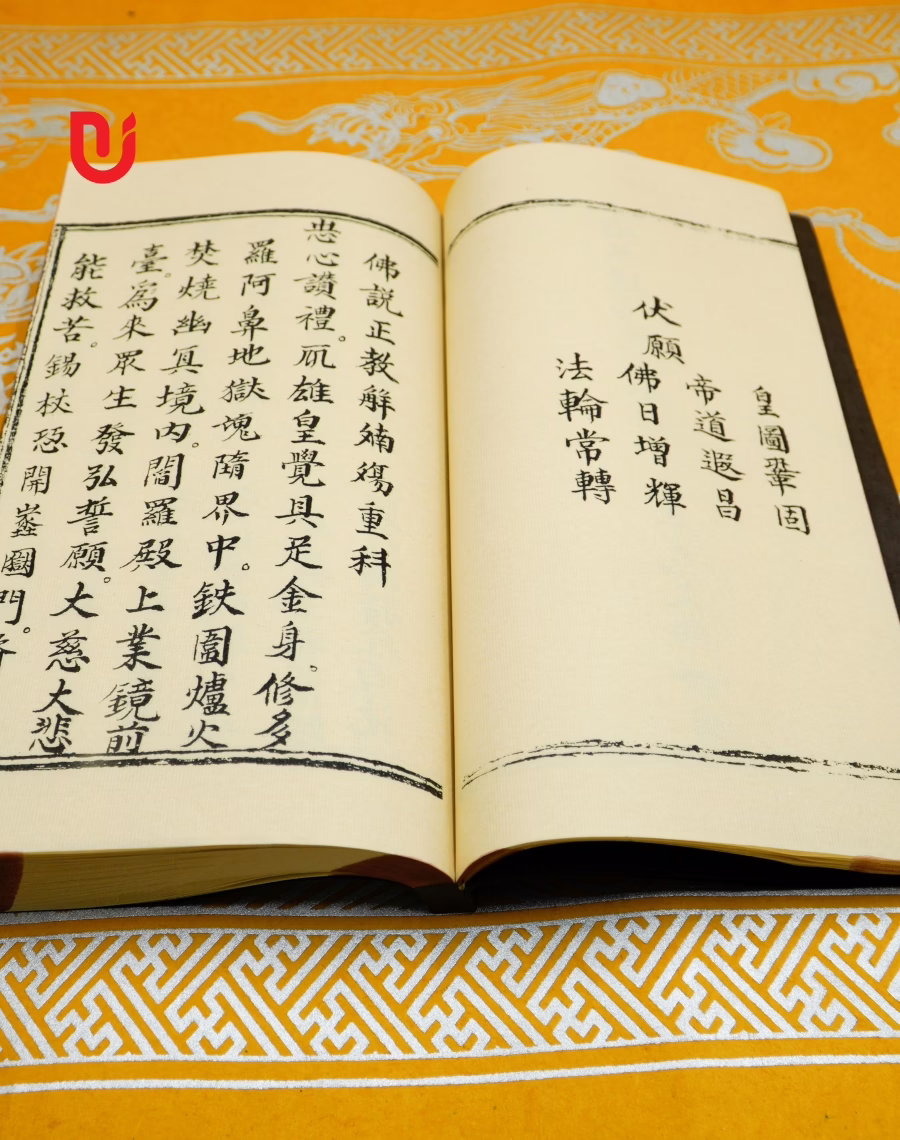 伏願
皇圖鞏固
帝道遐昌
佛日增輝
法輪常轉
佛説正教觧殤重科
心讃禮。雄皇覺具足金身。修多
羅阿鼻地獄塊隨界中。鉄圍爐火
焚燒幽冥境内。閻羅殿上業鏡前
臺。爲來眾生發弘誓願。大慈大悲
能救苦。錫杖開門。